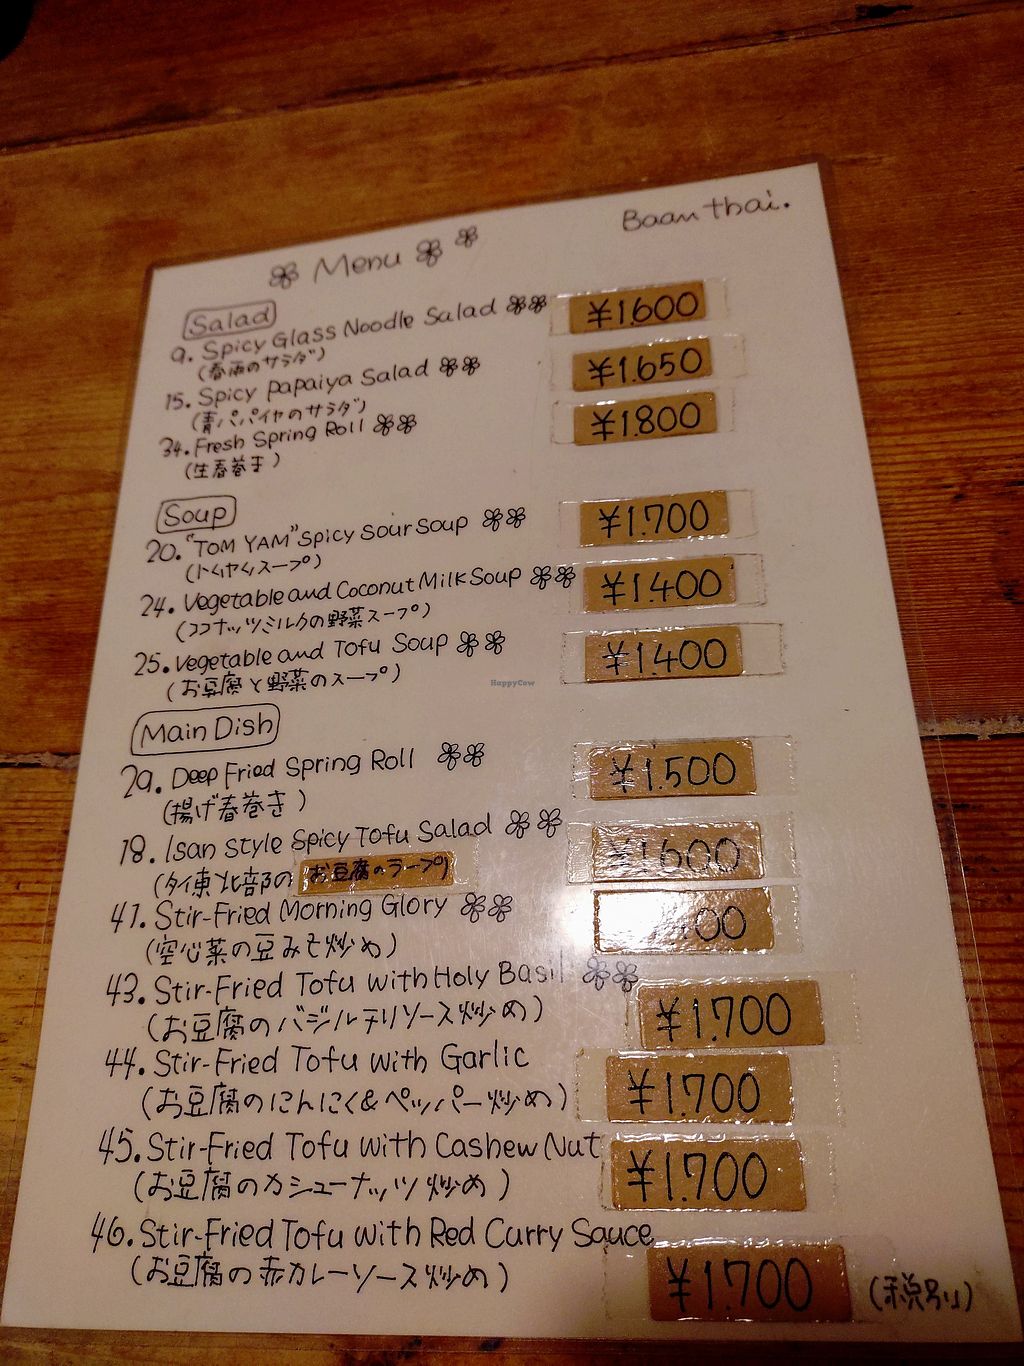 Baan thai.
Menu
Salad
9. Spicy Glass Noodle Salad ¥1.600
(春雨のサラダ)
15. Spicy papaiya Salad ¥1.650
(青パパイヤのサラダ)
34. Fresh Spring Roll ¥1.800
(生春巻き)
Soup
20. "TOM YAM" Spicy Sour Soup ¥1.700
(トムヤムスープ)
24. Vegetable and Coconut Milk Soup ¥1.400
(ココナッツミルクの野菜スープ)
25. Vegetable and Tofu Soup ¥1.400
(お豆腐と野菜のスープ)
HappyCow
Main Dish
29. Deep Fried Spring Roll ¥1.500
(揚げ春巻き)
18. Isan Style Spicy Tofu Salad ¥1.600
(タイ東北部のお豆腐のラープ)
41. Stir-Fried Morning Glory 00
(空心菜の豆みそ炒め)
43. Stir-Fried Tofu with Holy Basil ¥1.700
(お豆腐のバジルチリソース炒め)
44. Stir-Fried Tofu with Garlic ¥1.700
(お豆腐のにんにく&ペッパー炒め)
45. Stir-Fried Tofu with Cashew Nut ¥1.700
(お豆腐のカシューナッツ炒め)
46. Stir-Fried Tofu with Red Curry Sauce ¥1.700
(お豆腐の赤カレーソース炒め)
(税別り)